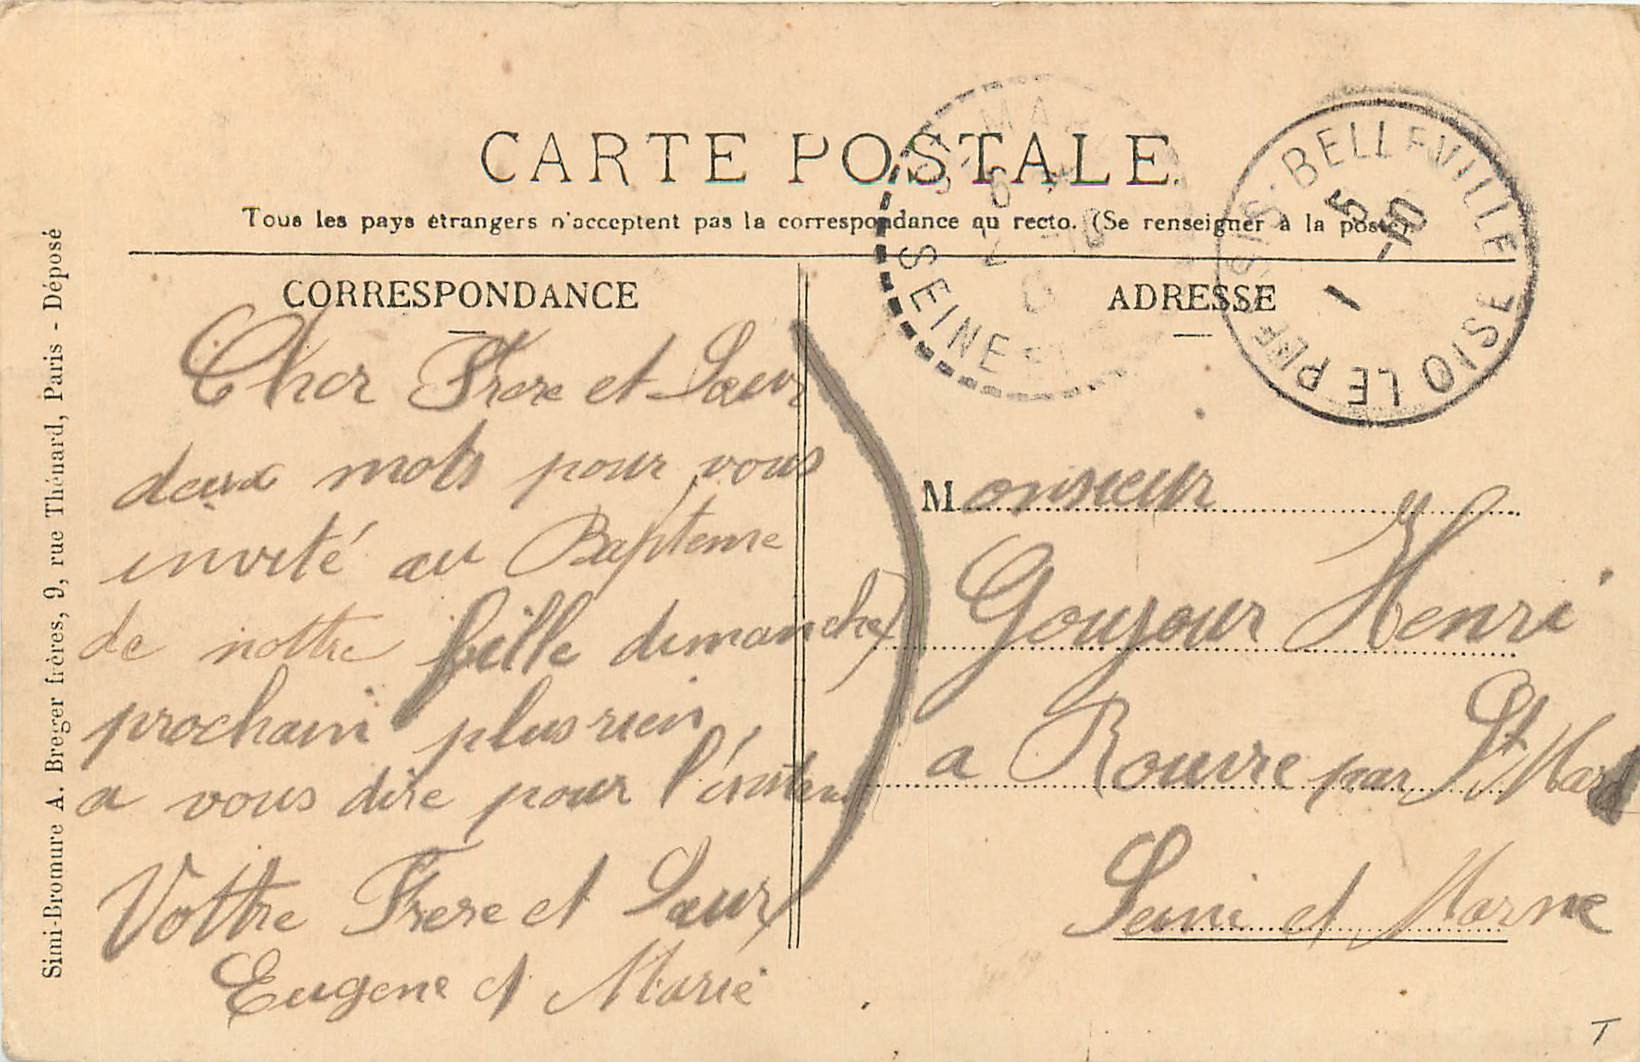 CARTE POSTALE
Tous les pays étrangers n'acceptent pas la correspondance au recto. (Se renseigner à la poste)
CORRESPONDANCE
Cher Frere et Sœur
deux mots pour vous
invité au Bapteme
de nottre fille dimanche
prochain plus rien
a vous dire pour l'
Vottre Frere et Sœur
Eugene et Marie
ADRESSE
Monsieur
Goujour Henri
a Rouvre par St Mard
Seine et Marne
LE PIN BELLEVILLE OISE
5
1 -10
MAR
6
-10
SEINE ET
Simi-Bromure A. Breger frères, 9, rue Thénard, Paris - Déposé
T